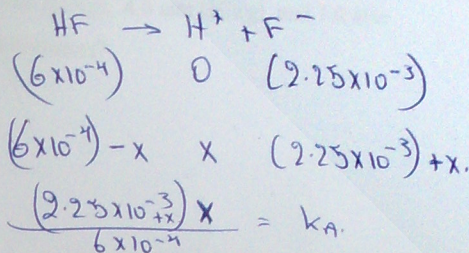 HF → H⁺ + F⁻
(6×10⁻⁴) 0 (2.25×10⁻³)
(6×10⁻⁴)-x x (2.25×10⁻³)+x.
(2.25×10⁻³+x) x / 6×10⁻⁴ = kA.